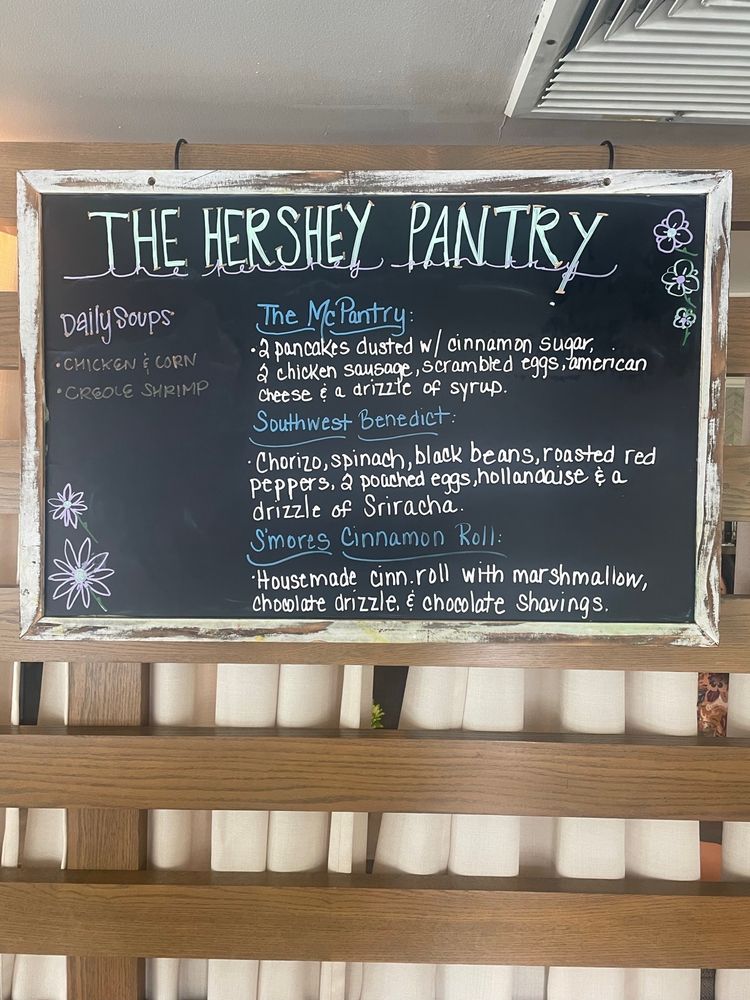 THE HERSHEY PANTRY
the hershey pantry
Daily Soups
• CHICKEN & CORN
• CREOLE SHRIMP
The McPantry:
• 2 pancakes dusted w/ cinnamon sugar,
2 chicken sausage, scrambled eggs, american
cheese & a drizzle of syrup.
Southwest Benedict:
• Chorizo, spinach, black beans, roasted red
peppers, 2 poached eggs, hollandaise & a
drizzle of Sriracha.
S'mores Cinnamon Roll:
• Housemade cinn. roll with marshmallow,
chocolate drizzle, & chocolate shavings.